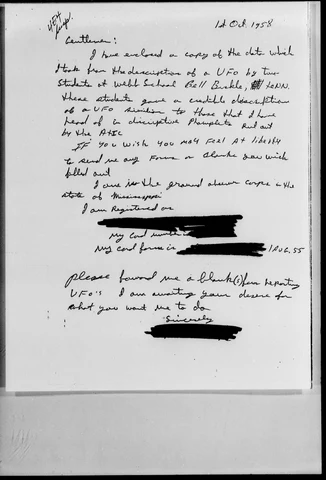 14 Oct, 1958
Gentlemen:
I have enclosed a copy of the data which
I took from the description of a UFO by two
Students at Webb School Bell Buckle, TENN.
these students gave a credible description
of a UFO similar to those that I have
read of in discriptive Phamplets put out
by the ATIC
If you wish you may feel at liberty
to send me any forms or blanks you wish
filled out
I am in the ground observer corps in the
state of Mississippi
I am Registered as
My card number is
My card form is 1 AUG. 55
please foward me a blank(s) for reporting
UFO's I am awaiting your desire for
what you want me to do
Sincerely